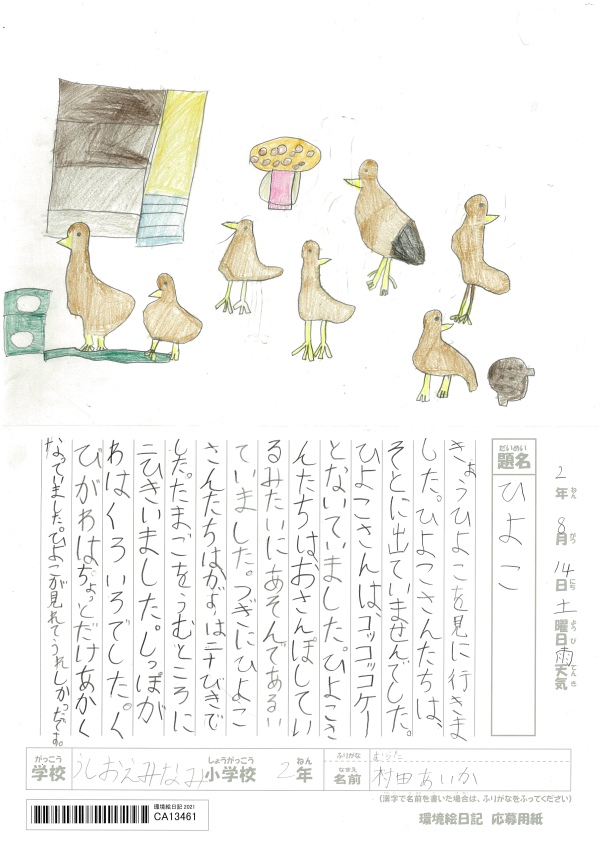 2年 8月 14日 土曜日 雨天気
ねん がつ にち よう び てん き
だいめい
題名
ひよこ
きょうひよこを見に行きま
した。ひよこさんたちは、
そとに出ていませんでした。
ひよこさんは、コッコッコケー
とないていました。ひよこさ
んたちは、おさんぽしてい
るみたいにあそんであるい
ていました。つぎにひよこ
さんたちは
した。たまごをうむところに
二ひきいました。しっぽが
わはくろいろでした。く
びがわはちょっとだけあかく
なっていました。ひよこが見れてうれしかったです。
がっこう しょうがっこう ねん
学校 うしおえみなみ 小学校 2年
ふりがな むらた
なまえ
名前 村田あいか
(漢字で名前を書いた場合は、ふりがなをふってください)
環境絵日記 応募用紙
環境絵日記 2021
CA13461